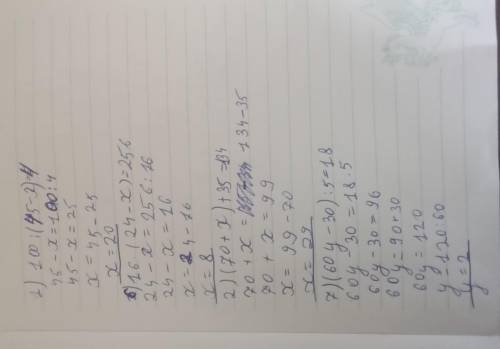 1) 100:(45-2)=4
45-x=100:4
45-x=25
x=45-25
x=20
6) 16 (24-x)=256
24-x=256:16
24-x=16
x=24-16
x=8
2) (70+x)+35=134
70+x= 134-35
70+x=99
x=99-70
x=29
7) (60y-30):5=18
60y 30=18·5
60y-30=96
60y=90+30
60y=120
y 120:60
y=2